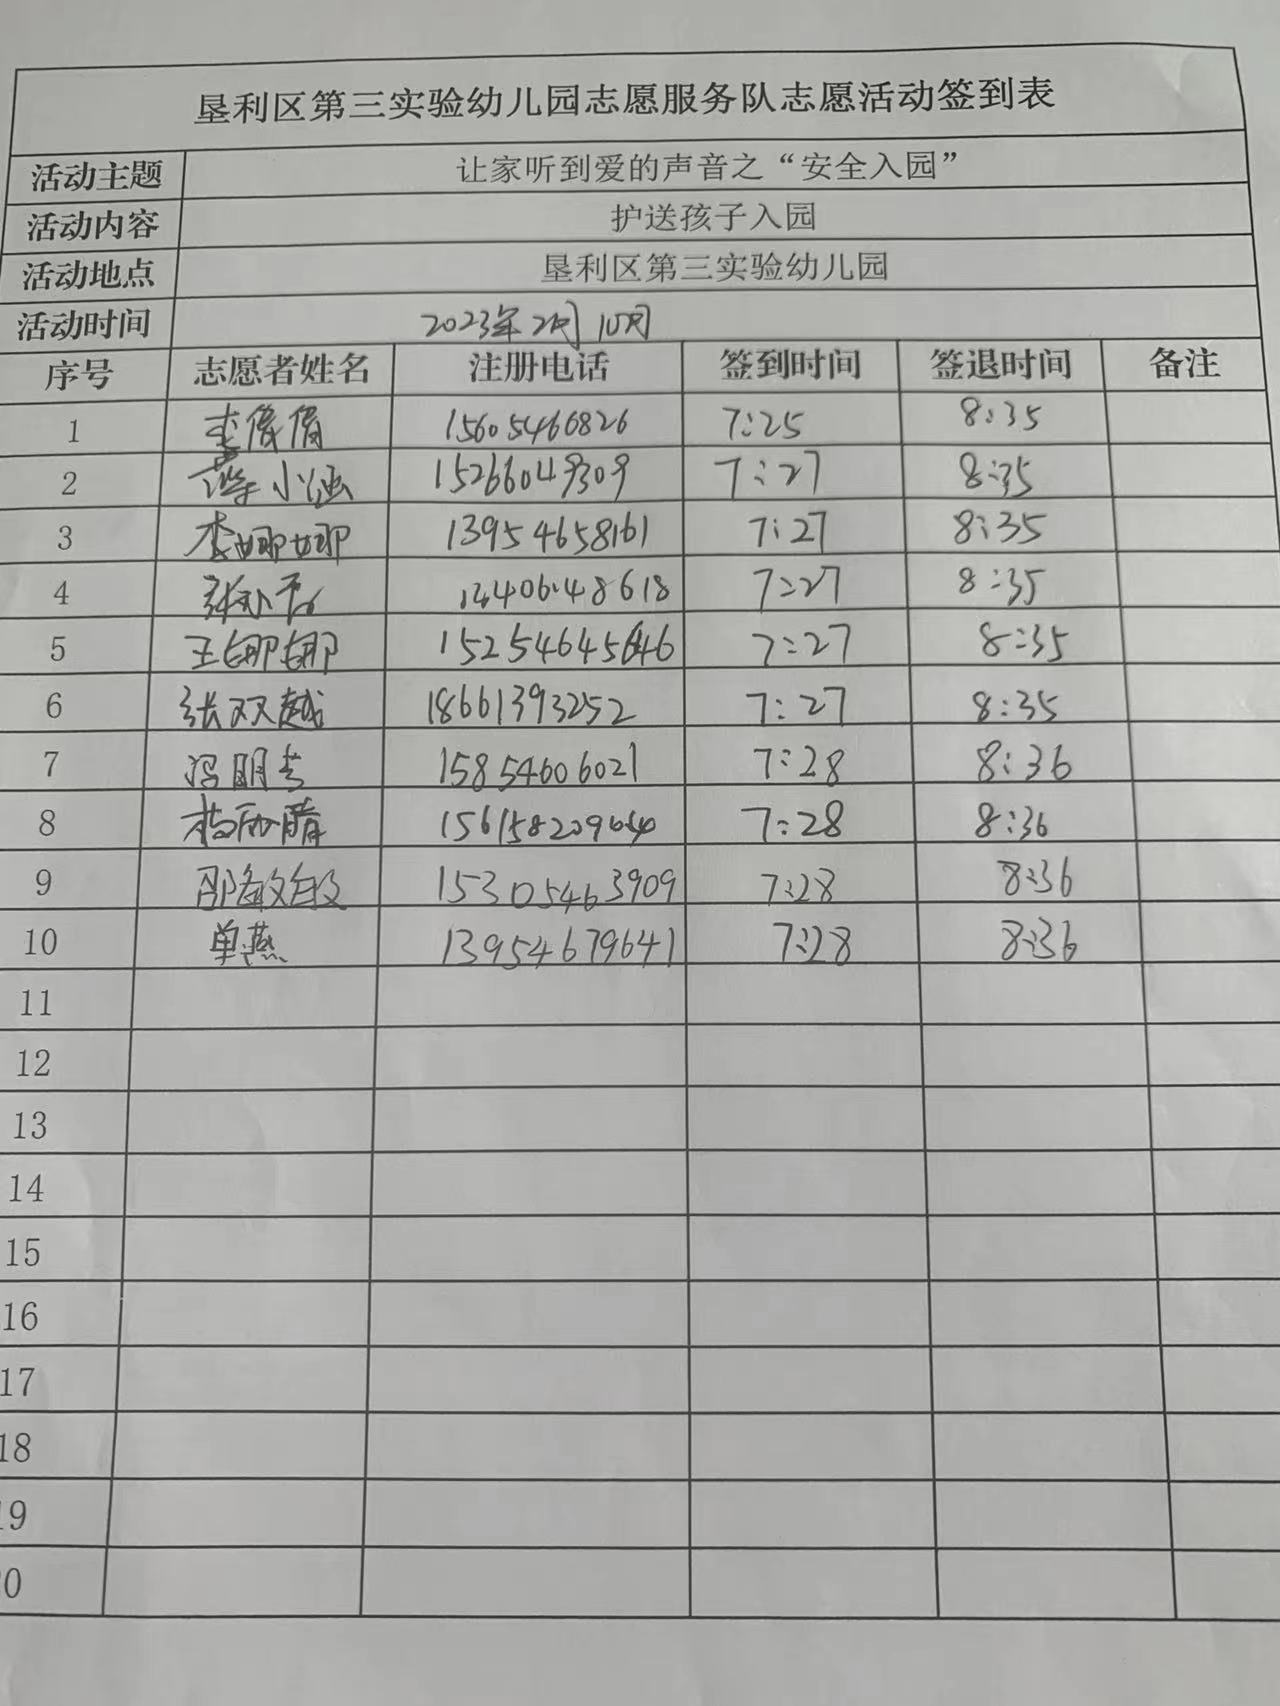 垦利区第三实验幼儿园志愿服务队志愿活动签到表
活动主题 让家听到爱的声音之“安全入园”
活动内容 护送孩子入园
活动地点 垦利区第三实验幼儿园
活动时间 2023年2月10日
序号 志愿者姓名 注册电话 签到时间 签退时间 备注
1 李倩倩 15605466826 7:25 8:35
2 薛小涵 15266049309 7:27 8:35
3 李娜娜 13954658161 7:27 8:35
4 1340648618 7:27 8:35
5 王娜娜 7:27 8:35
6 张双越 18661393252 7:27 8:35
7 冯明芸 15854606021 7:28 8:36
8 7:28 8:36
9 邵敏敏 15305463909 7:28 8:36
10 单燕 13954679641 7:28 8:36
11
12
13
14
15
16
17
18
19
0